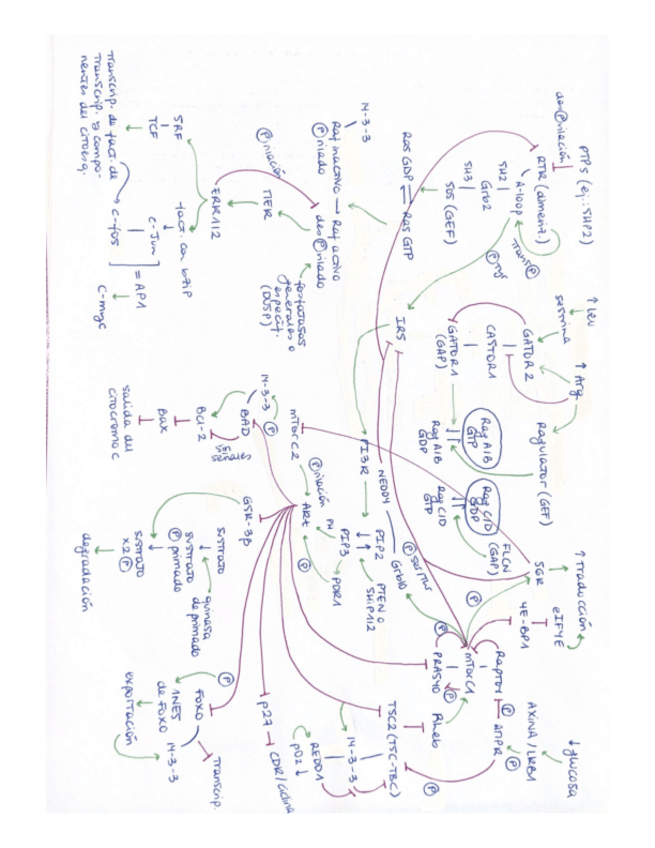 PTPs (ej.: SHP2)
des Ⓟ rilación
RTK (diment.)
A-loop
transⓅ
SH2
Grb2
SH3
SOS (GEF)
Ras GDP
Ras GTP
14-3-3
Raf inactivo → Raf activo
Ⓟ rilado
des Ⓟ rilado
fosfatasas
generales o
específ.
(DUSP)
Ⓟ rilación
MEK
ERK1/2
SRF
TCF
fact. con bZIP
c-Jun
c-fos
= AP1
c-myc
Transcrip. de fact. de
transcrip. y compo-
nentes del citoesq.
↑ Leu
sestrina
↑ Arg
GATOR 2
CASTOR1
GATOR1
(GAP)
Ragulator (GEF)
Rag A/B
GTP
Rag A/B
GDP
Rag C/D
GDP
Rag C/D
GTP
FLCN
(GAP)
IRS
PI3K
NEDD4
Grb10
PIP2
PIP3
PTEN o
SHIP1/2
PH
PDK1
Ⓟ rilación
mTORC2
Akt
14-3-3
Ⓟ
BAD
Bcl-2
Bax
salida del
citocromo c
GSK-3β
sustrato
quinasa
de primado
sustrato
Ⓟ primado
sustrato
x2 Ⓟ
degradación
↑ Traducción
eIF4E
4E-BP1
S6K
Raptor
mTORC1
PRAS40
Rheb
↓ glucosa
AXINA / LKB1
AMPK
TSC2 (TSC-TBC)
14-3-3
REDD1
pO2 ↓
p27
CDK/ciclina
FOXO
Transcrip.
↑NES
de FOXO
14-3-3
exportación